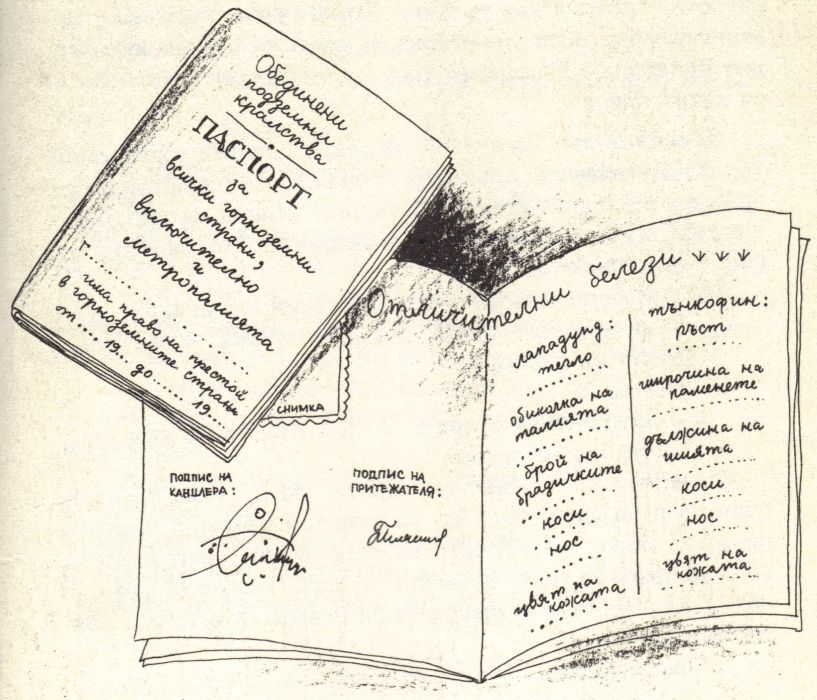 Обединени
подземни
кралства
ПАСПОРТ
за
всички горноземни
страни,
включително
и
метрополията
г. . . . . . . . . . . . . . . . .
има право на престой
в горноземните страни
от . . . . 19. . . до . . . . . . 19. . . .
СНИМКА
ПОДПИС НА
КАНЦЛЕРА:
ПОДПИС НА
ПРИТЕЖАТЕЛЯ:
Отличителни белези ↓ ↓ ↓
лападунд:
тегло
обиколка на
талията
брой на
брадичките
коси
нос
цвят на
кожата
тънкофин:
ръст
широчина на
раменете
дължина на
шията
коси
нос
цвят на
кожата